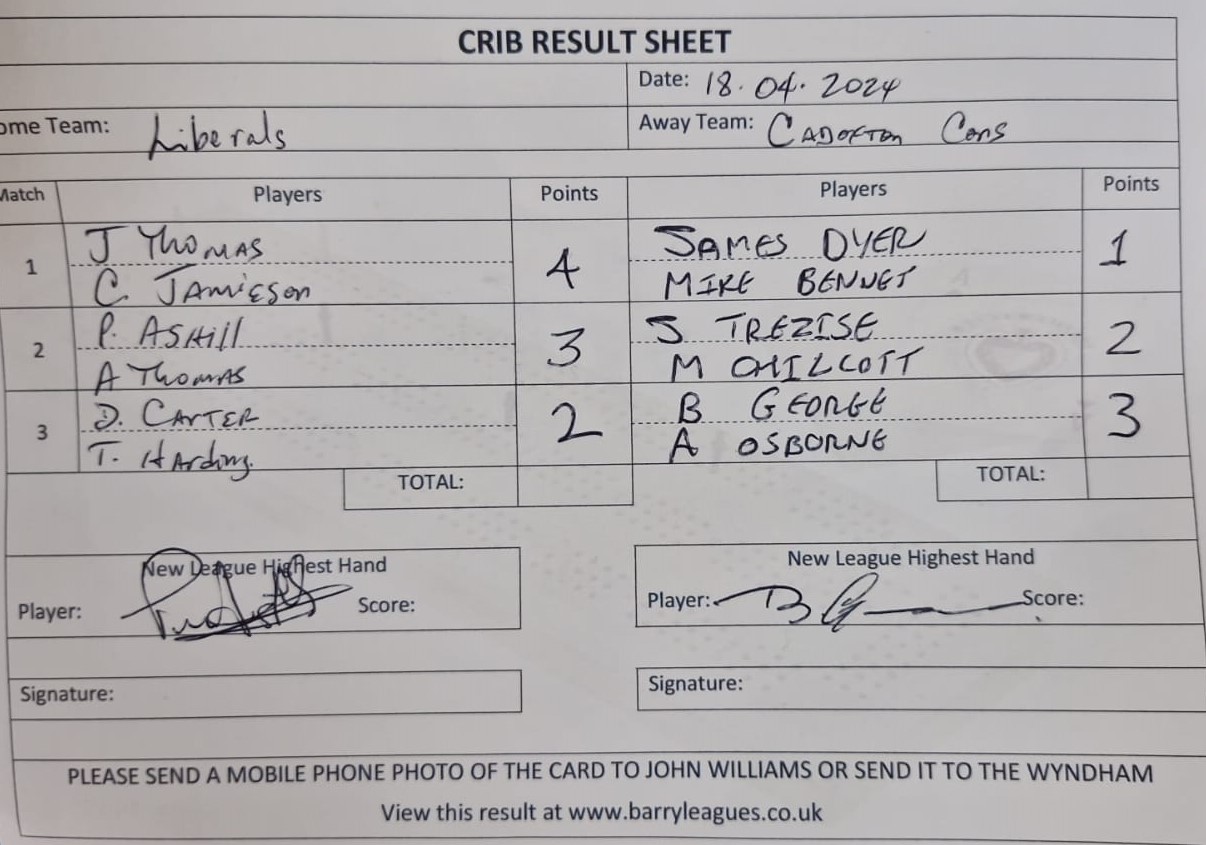 CRIB RESULT SHEET
Date: 18.04.2024
ome Team: Liberals Away Team: CADOXTON Cons
Match Players Points Players Points
1 J THOMAS 4 JAMES DYER 1
C. JAMIESON MIKE BENNET
2 P. ASHill 3 J TREZISE 2
A THOMAS M CHILCOTT
3 D. CARTER 2 B GEORGE 3
T. HArding. A OSBORNE
TOTAL: TOTAL:
New League Highest Hand New League Highest Hand
Player: Score: Player: Score:
Signature: Signature:
PLEASE SEND A MOBILE PHONE PHOTO OF THE CARD TO JOHN WILLIAMS OR SEND IT TO THE WYNDHAM
View this result at www.barryleagues.co.uk